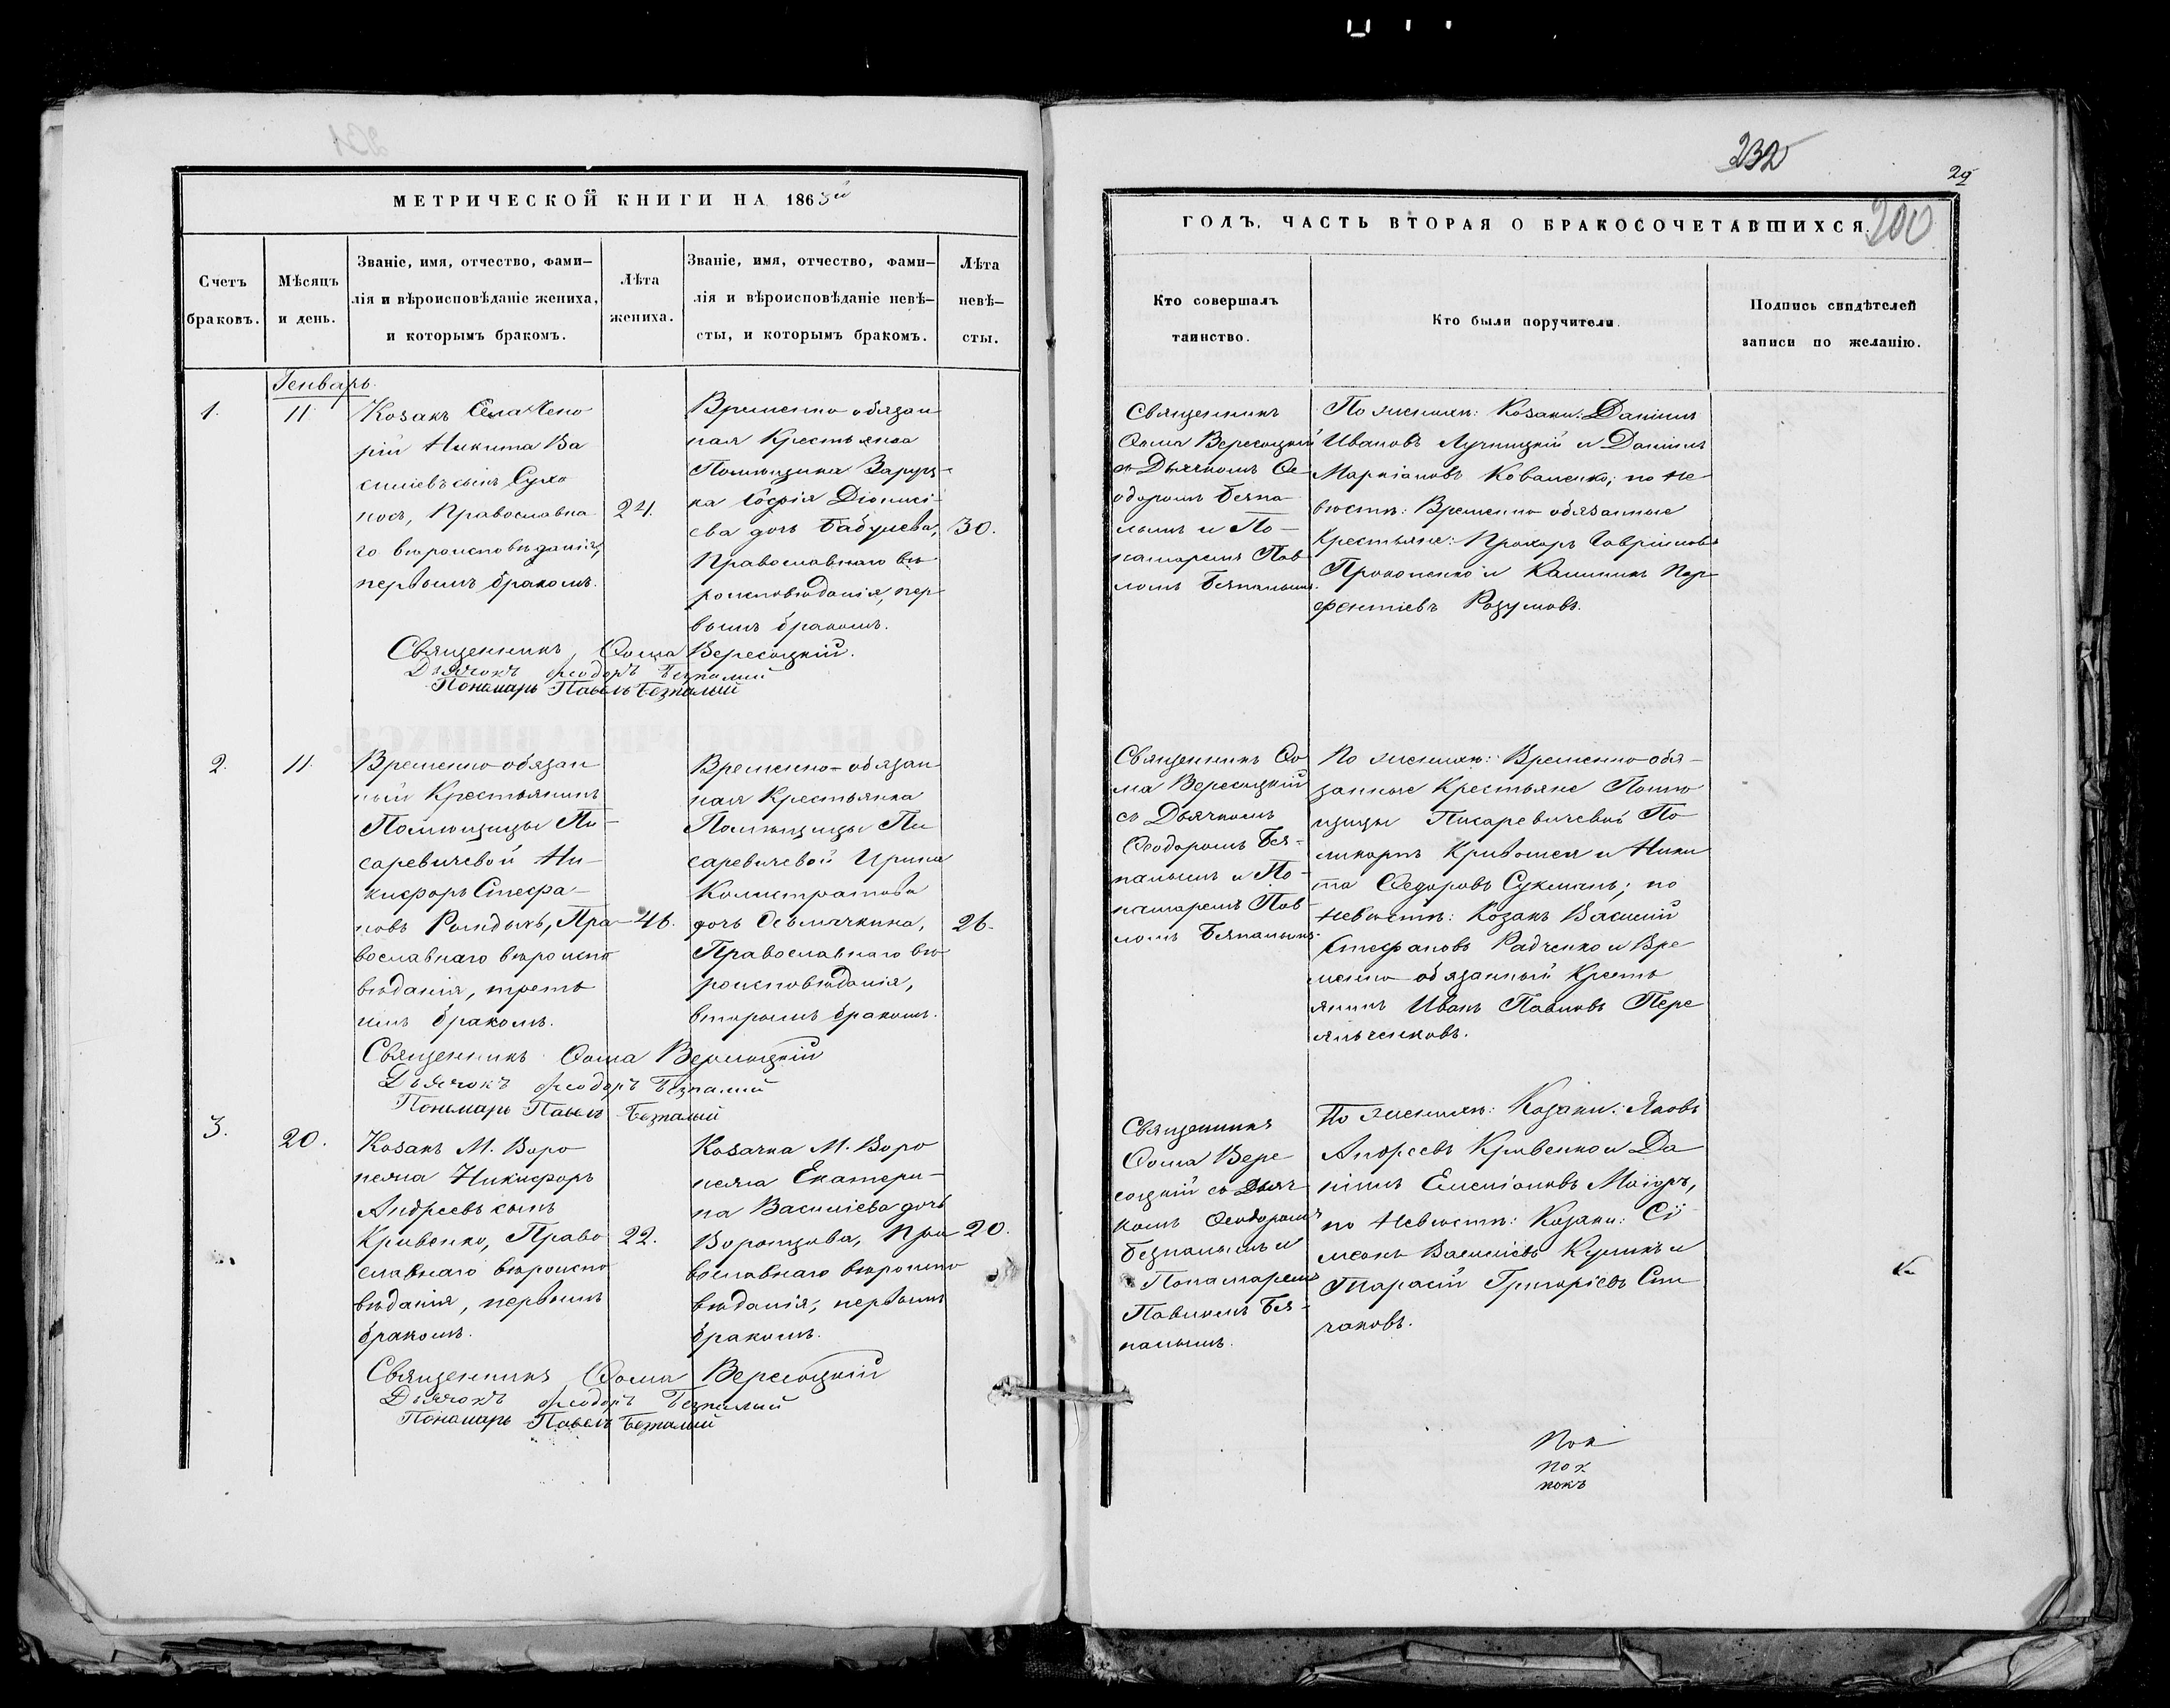 МЕТРИЧЕСКОЙ КНИГИ НА 1863й
Счетъ браковъ.
Мѣсяцъ и день.
Званіе, имя, отчество, фами–
лія и вѣроисповѣданіе жениха,
и которымъ бракомъ.
Лѣта
жениха.
Званіе, имя, отчество, фами–
лія и вѣроисповѣданіе невѣ–
сты, и которымъ бракомъ.
Лѣта
невѣ–
сты.
Генварь.
1.
11.
Козакъ Села
рій Никита Ва
силіевъ сынъ Сухо
носъ, Православна
го вѣроисповѣданія,
первымъ бракомъ.
24.
Временно обязан
ная Крестьянка
Помѣщика
ка Софія Діонисі–
ева дочь Бабуцева,
Православнаго вѣ
роисповѣданія, пер
вымъ бракомъ.
30.
Священникъ Ѳома Вересоцкій.
Дьячокъ Ѳеодоръ Безпалый
Пономарь Павелъ Безпалый
2.
11.
Временно-обязан
ный Крестьянинъ
Помѣщицы Пи–
саревичевой Ни–
кифоръ Стефа–
новъ Рындыкъ, Пра–
вославнаго вѣроиспо
вѣданія, треть
имъ бракомъ.
46.
Временно-обязан
ная Крестьянка
Помѣщицы Пи
саревичевой Ирина
Калистратова
дочь Осьмачкина,
Православнаго вѣ
роисповѣданія,
вторымъ бракомъ.
26.
Священникъ Ѳома Вересоцкій
Дьячокъ Ѳеодоръ Безпалый
Пономарь Павелъ Безпалый
3.
20.
Козакъ М. Воро
нежа Никифоръ
Андреевъ сынъ
Кривенко, Право
славнаго вѣроиспо
вѣданія, первымъ
бракомъ.
22.
Козачка М. Воро
нежа Екатери–
на Василіева дочь
Воронцова, Пра
вославнаго вѣроиспо
вѣданія, первымъ
бракомъ.
20.
Священникъ Ѳома Вересоцкій
Дьячокъ Ѳеодоръ Безпалый
Пономарь Павелъ Безпалый
232
29
200
ГОДЪ, ЧАСТЬ ВТОРАЯ О БРАКОСОЧЕТАВШИХСЯ.
Кто совершалъ
таинство.
Кто были поручители.
Подпись свидѣтелей
записи по желанію.
Священникъ
Ѳома Вересоцкій
съ Дьячкомъ Ѳе–
одоромъ Безпа–
лымъ и По–
намаремъ Пав–
ломъ Безпалымъ.
По женихѣ: Козаки: Даніилъ
Ивановъ Лучницкій и Даніилъ
Маркіановъ Коваленко; по не
вѣстѣ: Временно обязанные
Крестьяне: Прохоръ Гавріиловъ
Прокопенко и Калиникъ Пар
фентіевъ Разумовъ.
Священникъ Ѳо
ма Вересоцкій
съ Дьячкомъ
Ѳеодоромъ Без–
палымъ и По–
намаремъ Пав–
ломъ Безпалымъ.
По женихѣ: Временно-обя–
занные Крестьяне Помѣ
щицы Писаревичевой По
ликарпъ Кривошея и Ники
та Ѳедоровъ Сукманъ; по
невѣстѣ: Козакъ Василій
Стефановъ Радченко и Вре
менно обязанный Кресть
янинъ Иванъ Павловъ Пере
Священникъ
Ѳома Вере
соцкій съ Дьяч–
комъ Ѳеодоромъ
Безпалымъ и
Понамаремъ
Павломъ Без–
палымъ.
По женихѣ: Козаки: Яковъ
Андреевъ Кривенко и Да
ніилъ Емеліановъ Маіоръ,
по невѣстѣ: Козаки: Сѵ
меонъ Василіевъ Куликъ и
Тарасій Григоріевъ Спи
чаковъ.
Пок
пок
покъ